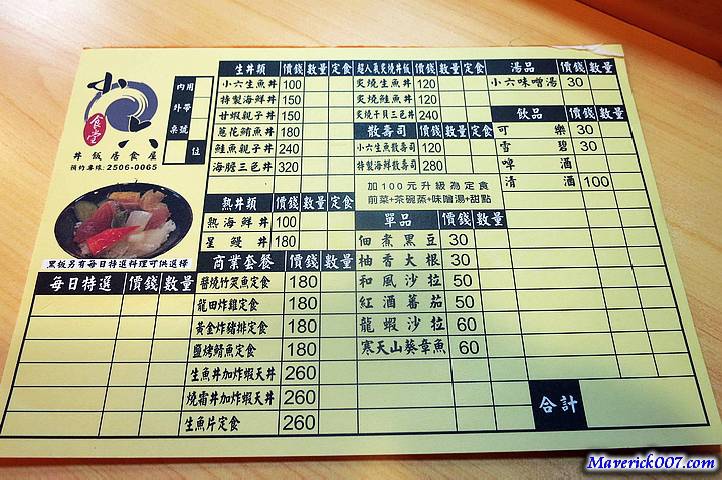 小六食堂
丼飯居食屋
預約專線: 2506-0065
內用
外帶
桌號
位
黑板另有每日特選料理可供選擇
每日特選 價錢 數量
生丼類 價錢 數量 定食
小六生魚丼 100
特製海鮮丼 150
甘蝦親子丼 150
蔥花鮪魚丼 180
鮭魚親子丼 240
海膽三色丼 320
熱丼類 價錢 數量 定食
熱海鮮丼 100
星鰻丼 180
商業套餐 價錢 數量
醬燒竹筴魚定食 180
龍田炸雞定食 180
黃金炸豬排定食 180
鹽烤鯖魚定食 180
生魚丼加炸蝦天丼 260
燒霜丼加炸蝦天丼 260
生魚片定食 260
超人氣炙燒丼飯 價錢 數量 定食
炙燒生魚丼 120
炙燒鮭魚丼 120
炙燒干貝三色丼 240
散壽司 價錢 數量 定食
小六生魚散壽司 120
特製海鮮散壽司 280
加100元升級為定食
前菜+茶碗蒸+味噌湯+甜點
單品 價錢 數量
佃煮黑豆 30
柚香大根 30
和風沙拉 50
紅酒蕃茄 50
龍蝦沙拉 60
寒天山葵章魚 60
湯品 價錢 數量
小六味噌湯 30
飲品 價錢 數量
可樂 30
雪碧 30
啤酒
清酒 100
合計
Maverick007.com